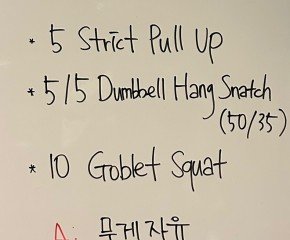 * 5 Strict Pull Up
* 5/5 Dumbbell Hang Snatch
(50/35)
* 10 Goblet Squat
A: 무게 자유